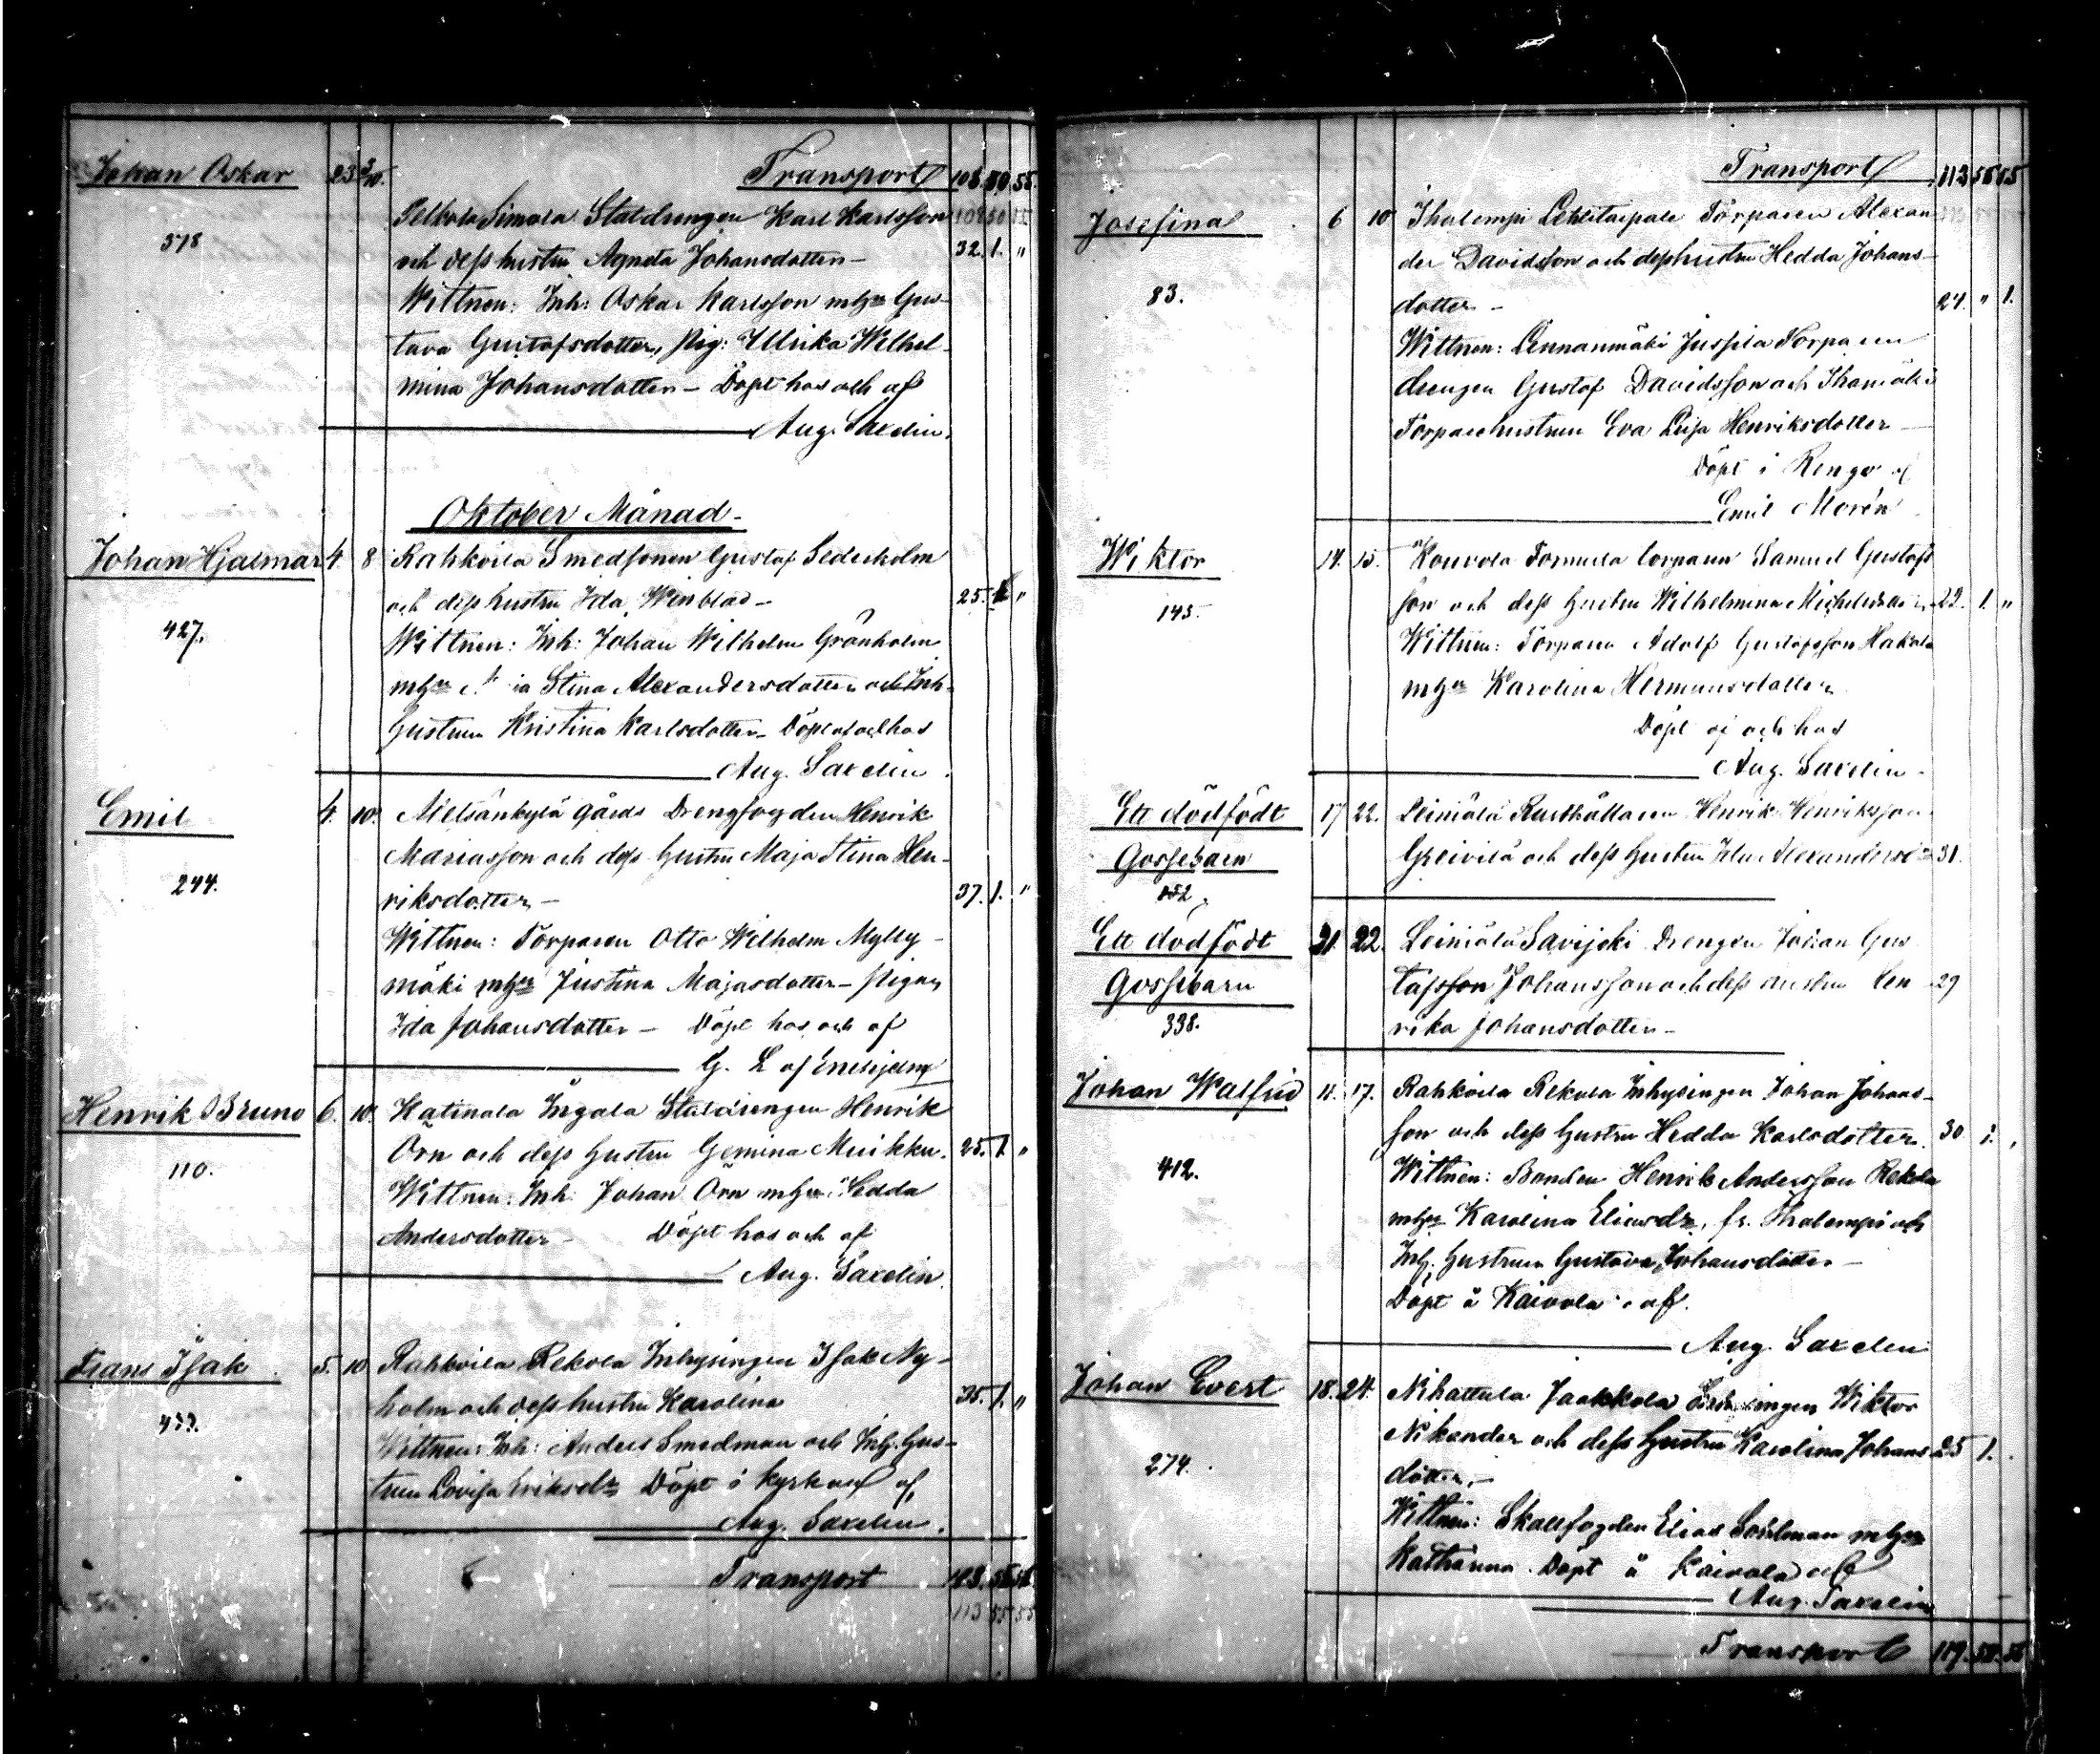 Transport 108. 50. 55.
Johan Oskar 23 3/10.
Pelkola Simola Staldrengen Karl Karlsson
578
och dess hustru Agneta Johansdotter – 32. 1. "
Wittnen: Inh: Oskar Karlsson mhu Gus-
tava Gustafsdotter, Pig: Ullrika Wilhel-
mina Johansdotter – Döpt hos och af
Aug. Saxelin.
Oktober Månad –
Johan Hjalmar 4. 8 Rahkoila Smedsonen Gustaf Sederholm
och dess hustru Ida Winblad – 25. 1. "
427.
Wittnen: Inh: Johan Wilhelm Grönholm
mhu Stina Alexandersdotter och Inh.
hustrun Kristina Karlsdotter – Döpt af och hos
Aug. Saxelin
Emil 4. 10. Mielsänkylä gårds Drengfogden Henrik
Mariasson och dess hustru Maja Stina Hen-
244.
riksdotter, – 37. 1. "
Wittnen: Torparen Otto Wilhelm Mylly-
mäki mhu Justina Majasdotter – Pigan
Ida Johansdotter – Döpt hos och af
G. L. af Enehjelm
Henrik Bruno 6. 10. Katinala Ingala Staldrengen Henrik
Orn och dess hustru Gemina Muikku. 25. 1. "
110.
Wittnen: Inh: Johan Orn mhu Hedda
Andersdotter – Döpt hos och af
Aug. Saxelin.
Frans Isak 5. 10 Rahkoila Rekola Inhysingen Isak Ny-
holm och dess hustru Karolina 35. 1. "
433.
Wittnen: Inh: Anders Smedman och Inh. hus-
trun Lovisa Eriksdr Döpt i kyrkan af
Aug. Saxelin.
Transport
113 55 55
Transport 113 55 55
Josefina 6 10 Ihalempi Lehtitaipale Torparen Alexan
der Davidsson och dess hustru Hedda Johans-
83.
dotter – 24. " 1.
Wittnen: Linnanmäki Jussila Torparen
drengen Gustaf Davidsson och Ihamäki
Torparehustrun Eva Leija Henriksdotter –
Döpt i Rengo af
Emil Morén
Wiktor 14. 15. Kouvola Tormula torparen Samuel Gustafs
son och dess hustru Wilhelmina 22. 1. "
145.
Wittnen: Torparen Adolf Gustafsson Hakala
mhu Karolina Hermansdotter
Döpt af och hos
Aug. Saxelin –
Ett dödfödt 17 22. Leiniälä Rusthållaren Henrik Henriksson
Gossebarn och dess hustru Ida 31.
Ett dödfödt 21. 22 Leiniälä Savijoki Drengen Johan Gus
Gossebarn tafsson Johansson och dess hustru Hen 29
338.
rika Johansdotter –
Johan Walfrid 11. 17. Rahkoila Rekola Inhysingen Johan Johans-
son och dess hustru Hedda Karlsdotter. 30 1. "
412.
Wittnen: Bonden Henrik Andersson Rekola
mhu Karolina Eliasdr, fr. Ihalempi och
Inh. hustrun Gustava Johansdotter –
Döpt å Kaivola af.
Aug. Saxelin
Johan Evert 18. 24. Nihattula Jaakkola Inhysingen Wiktor
Nikander och dess hustru Karolina Johans 25 1.
274.
dotter, –
Wittnen: Skallfogden Elias Sohlman mhu
Katharina. Döpt å Kaivola af
Aug. Saxelin
Transport